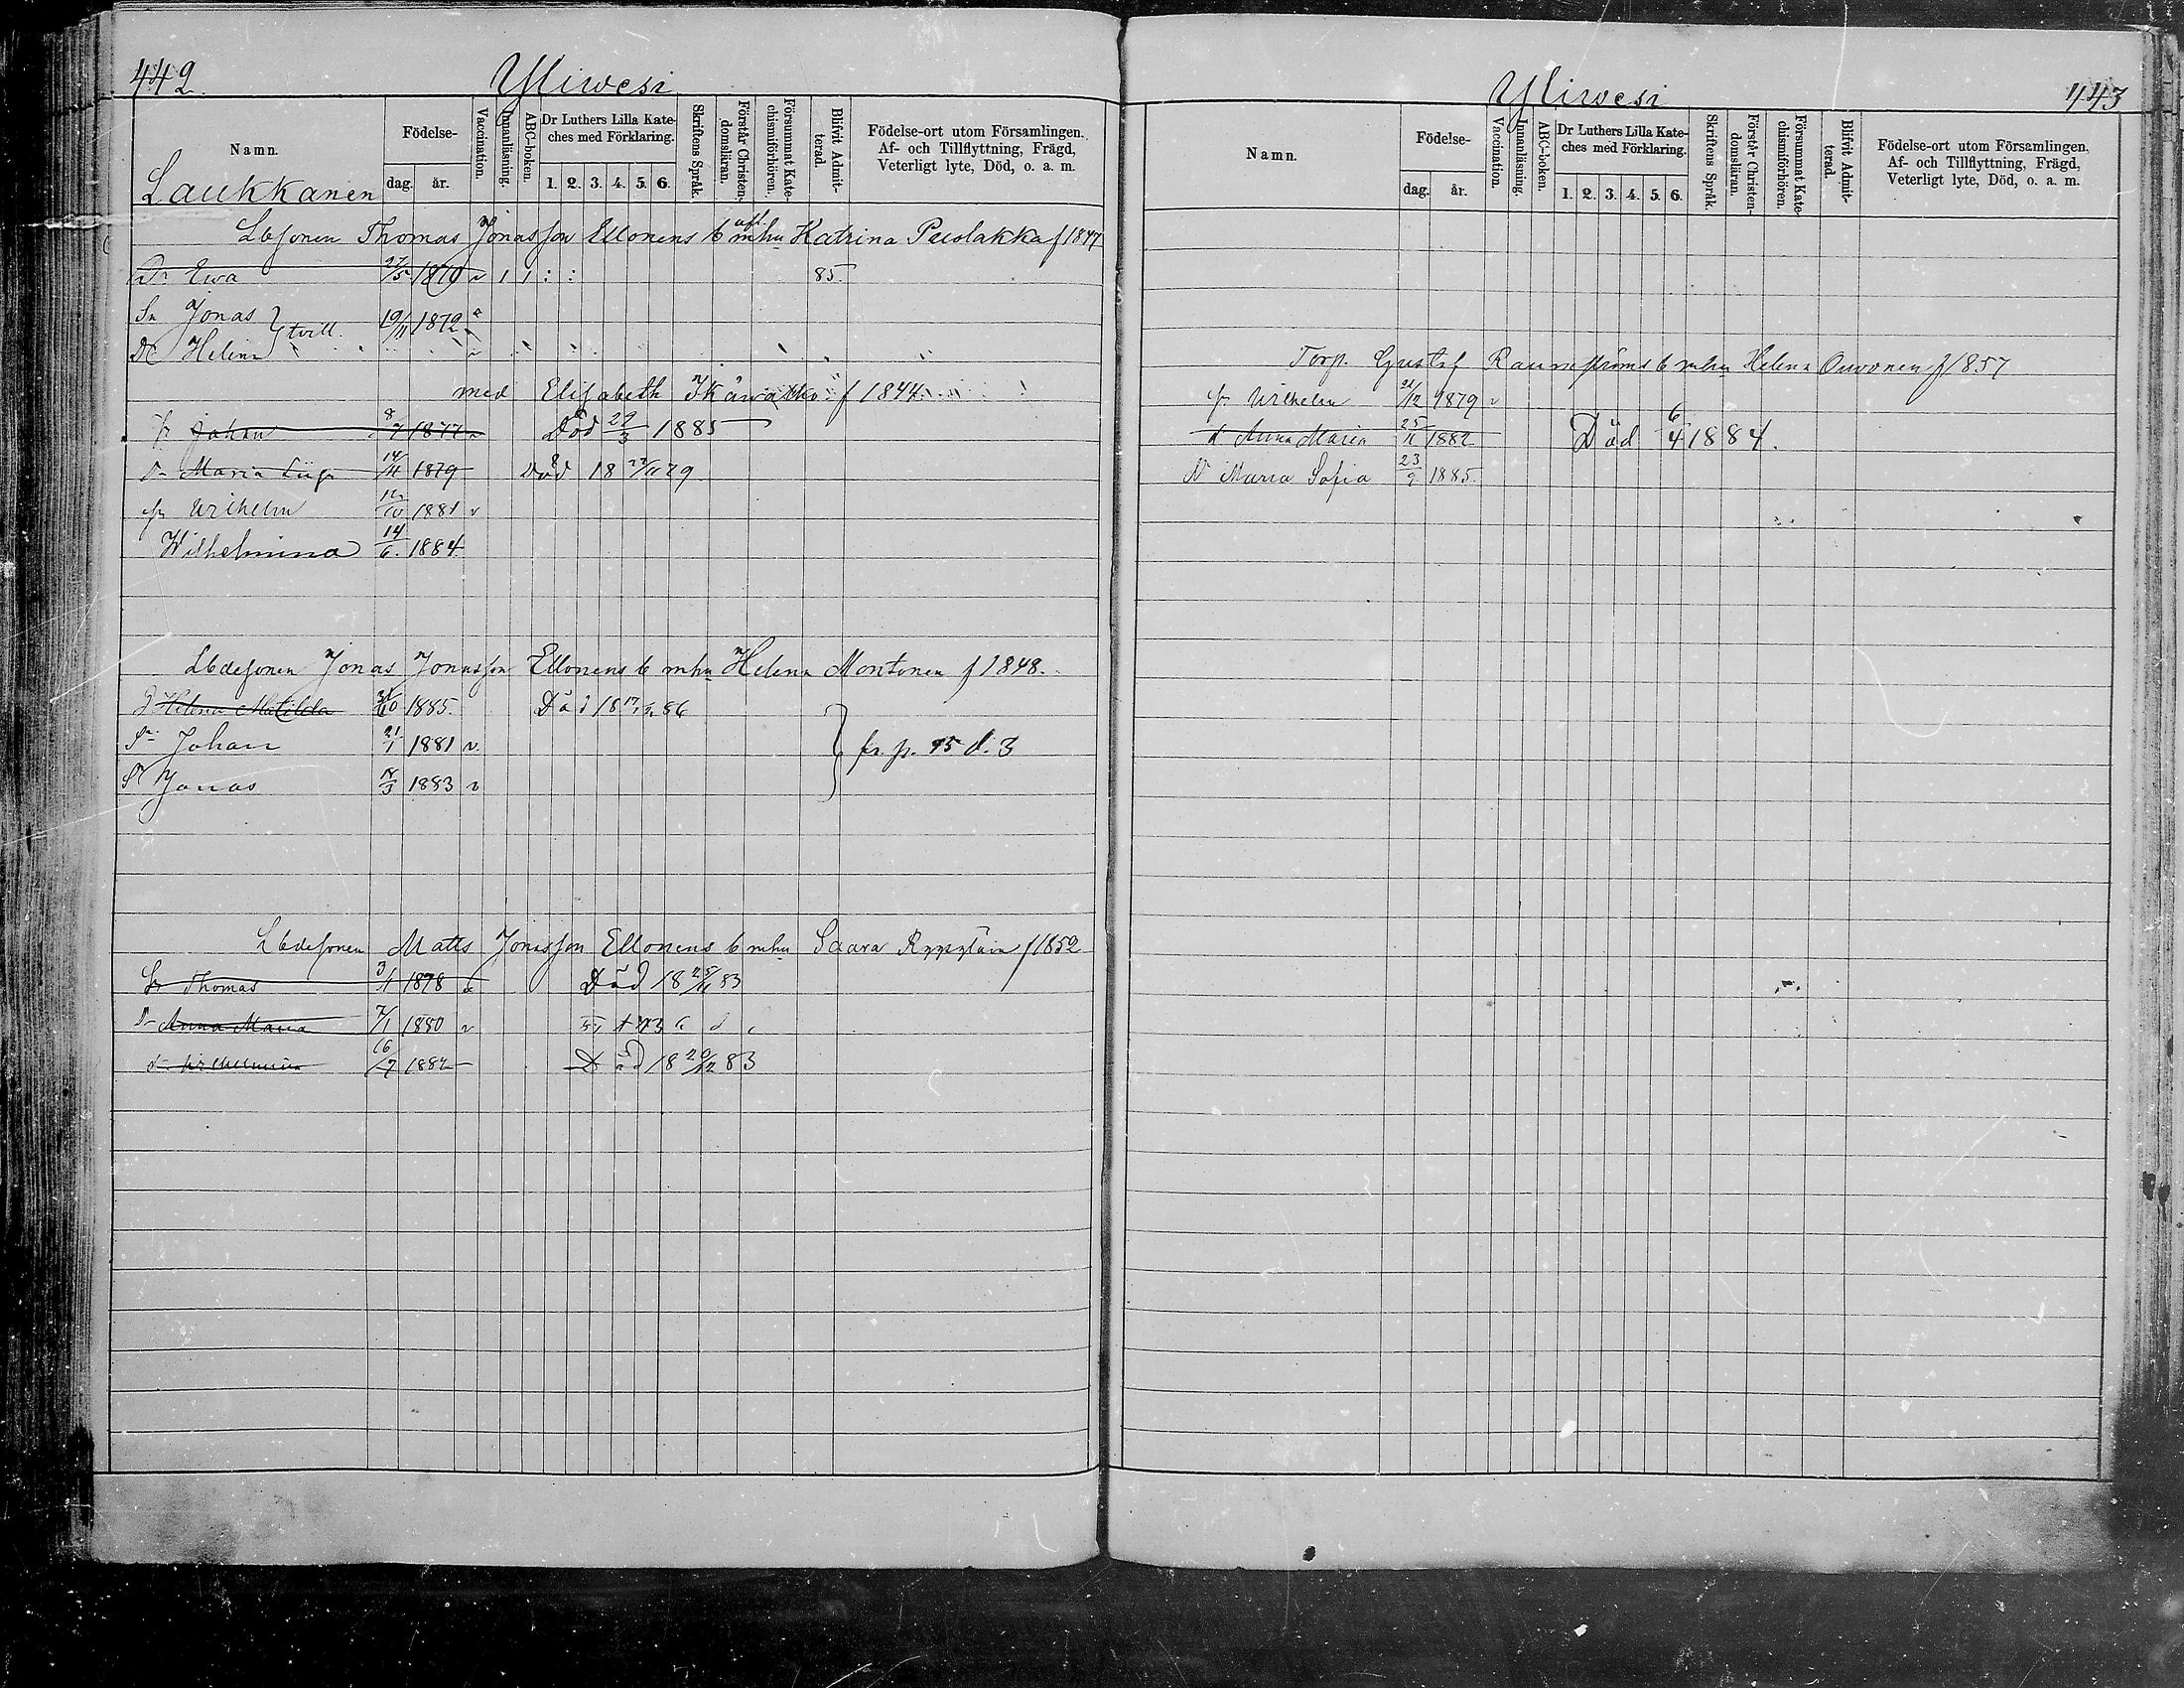 442
Yliwesi
Namn.
Födelse-
dag. år.
Vaccination.
Innanläsning.
ABC-boken.
Dr Luthers Lilla Kate-
ches med Förklaring.
1. 2. 3. 4. 5. 6.
Skriftens Språk.
Förstår Christen-
domsläran.
Försummat Kate-
chismiförhören.
Blifvit Admit-
terad.
Födelse-ort utom Församlingen.
Af- och Tillflyttning, Frägd,
Veterligt lyte, Död, o. a. m.
Laukkanen
Lbsonen Thomas Jonasson Ellonens b m afl. hu Katrina Puolakka f 1847
Dr Ewa 27/5 1870 v 1 1 : : 85
Sn Jonas } tvill. 19/11 1872
Dr Helena
med Elisabeth f 1844
Johan 8/7 1877 Död 29/3 1885
Dr Maria 14/11 1879 Död 18 22/11 79
Wilhelm 12/10 1881 v
Wilhelmina 14/6. 1884
Lbdesonen Jonas Jonasson Ellonens b mhu Helena Montonen f 1848.
D Helena Matilda 1885. Död 18 86
Sn Johan 21/1 1881 v } fr. p. 15 d. 3
Sn Jonas 18/3 1883 v
Lbdesonen Matts Jonasson Ellonens b mhu Saara f 1852
Sn Thomas 3/1 1878 Död 18 25/11 83
Dr Anna Maria 7/1 1880 v
d Wilhelmina 16/7 1882 Död 18 20/12 83
Yliwesi
443
Namn.
Födelse-
dag. år.
Vaccination.
Innanläsning.
ABC-boken.
Dr Luthers Lilla Kate-
ches med Förklaring.
1. 2. 3. 4. 5. 6.
Skriftens Språk.
Förstår Christen-
domsläran.
Försummat Kate-
chismiförhören.
Blifvit Admit-
terad.
Födelse-ort utom Församlingen,
Af- och Tillflyttning, Frägd,
Veterligt lyte, Död, o. a. m.
Torp. Gustaf b mhu Helena Ouvonen f 1857
Wilhelm 21/12 1879 v
d Anna Maria 25/11 1882 Död 6/4 1884.
Dr Maria Sofia 23/9 1885.